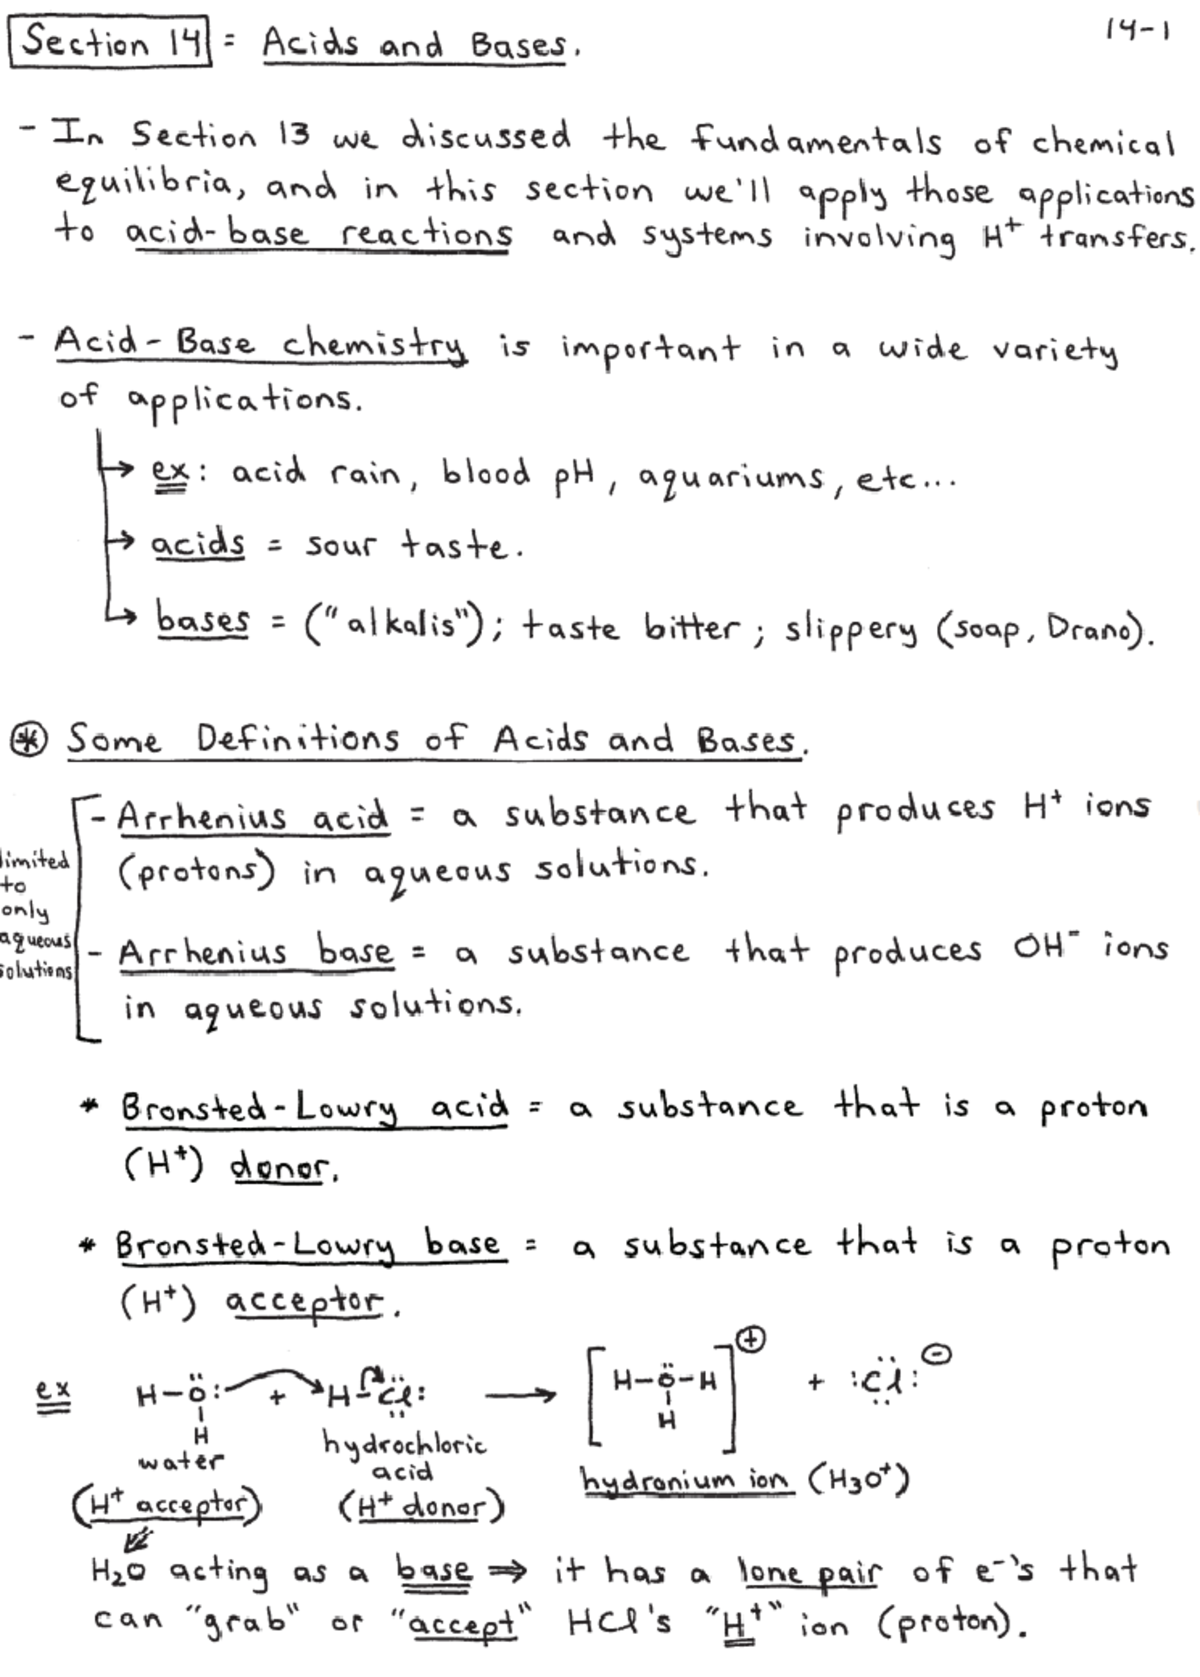 Section 14 = Acids and Bases.
14-1
- In Section 13 we discussed the fundamentals of chemical
equilibria, and in this section we'll apply those applications
to acid-base reactions and systems involving H⁺ transfers.
- Acid-Base chemistry is important in a wide variety
of applications.
→ ex: acid rain, blood pH, aquariums, etc...
→ acids = sour taste.
→ bases = ("alkalis"); taste bitter; slippery (soap, Drano).
⊛ Some Definitions of Acids and Bases.
- Arrhenius acid = a substance that produces H⁺ ions
(protons) in aqueous solutions.
limited
to
only
aqueous
solutions
- Arrhenius base = a substance that produces OH⁻ ions
in aqueous solutions.
* Bronsted-Lowry acid = a substance that is a proton
(H⁺) donor.
* Bronsted-Lowry base = a substance that is a proton
(H⁺) acceptor.
ex H-Ö: + H-Cl: → [H-Ö-H]⊕ + :Cl:⊖
H H
water hydrochloric acid hydronium ion (H₃O⁺)
(H⁺ acceptor) (H⁺ donor)
H₂O acting as a base ⇒ it has a lone pair of e⁻'s that
can "grab" or "accept" HCl's "H⁺" ion (proton).